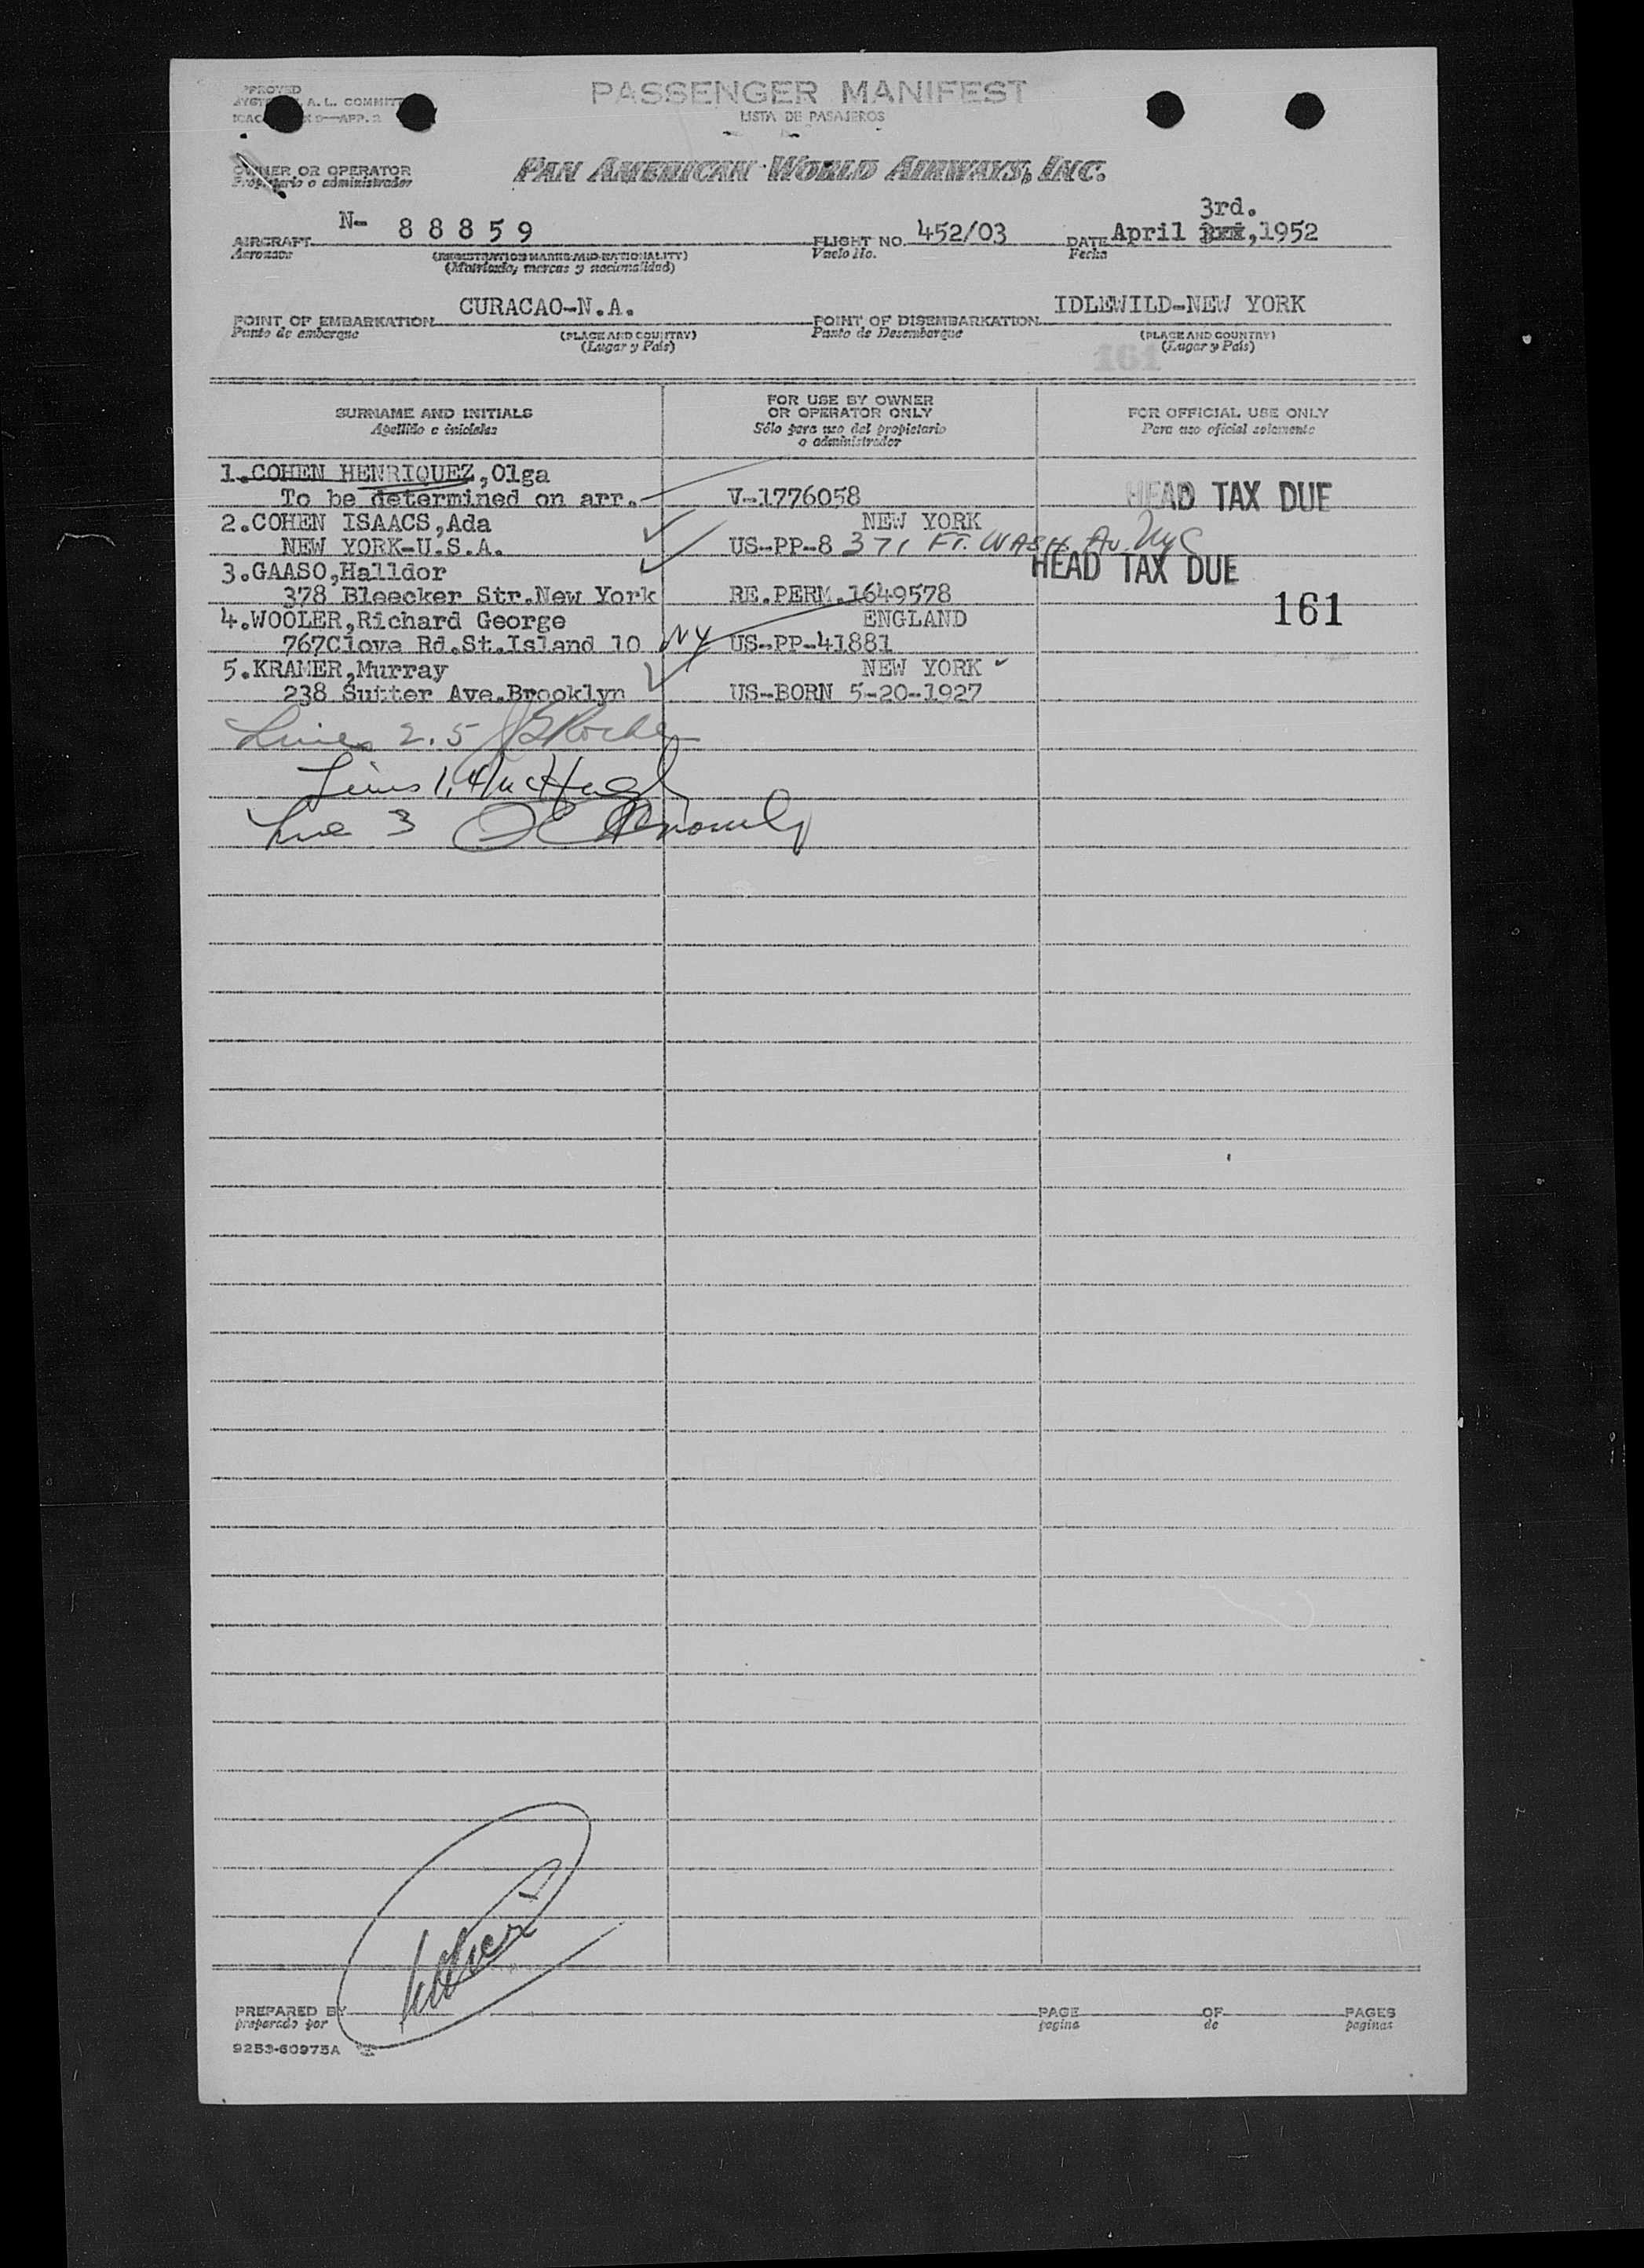 PASSENGER MANIFEST
LISTA DE PASAJEROS
A. L. COMMITT
9—APP. 2
OWNER OR OPERATOR
Propietario o administrador
PAN AMERICAN WORLD AIRWAYS, INC.
3rd.
N- 88859 452/03 April ,1952
AIRCRAFT FLIGHT NO. DATE
Aeronave (REGISTRATION MARKS AND NATIONALITY) Vuelo No. Fecha
(Matrícula, marcas y nacionalidad)
CURACAO-N.A. IDLEWILD-NEW YORK
POINT OF EMBARKATION POINT OF DISEMBARKATION
Punto de embarque (PLACE AND COUNTRY) Punto de Desembarque (PLACE AND COUNTRY)
(Lugar y País) (Lugar y País)
161
SURNAME AND INITIALS FOR USE BY OWNER OR OPERATOR ONLY FOR OFFICIAL USE ONLY
Apellido e iniciales Sólo para uso del propietario o administrador Para uso oficial solamente
1.COHEN HENRIQUEZ,Olga
To be determined on arr. V-1776058 HEAD TAX DUE
2.COHEN ISAACS,Ada NEW YORK
NEW YORK-U.S.A. US-PP-8 371 FT. WASH. Av. NYC
3.GAASO,Halldor HEAD TAX DUE
378 Bleecker Str.New York RE.PERM.1649578 161
4.WOOLER,Richard George ENGLAND
767Clove Rd.St.Island 10 NY US-PP-41881
5.KRAMER,Murray NEW YORK
238 Sutter Ave.Brooklyn US-BORN 5-20-1927
Lines 2.5
Lines 1,4 McHugh
Line 3
PREPARED BY PAGE OF PAGES
preparado por pagina de paginas
9253-60975A